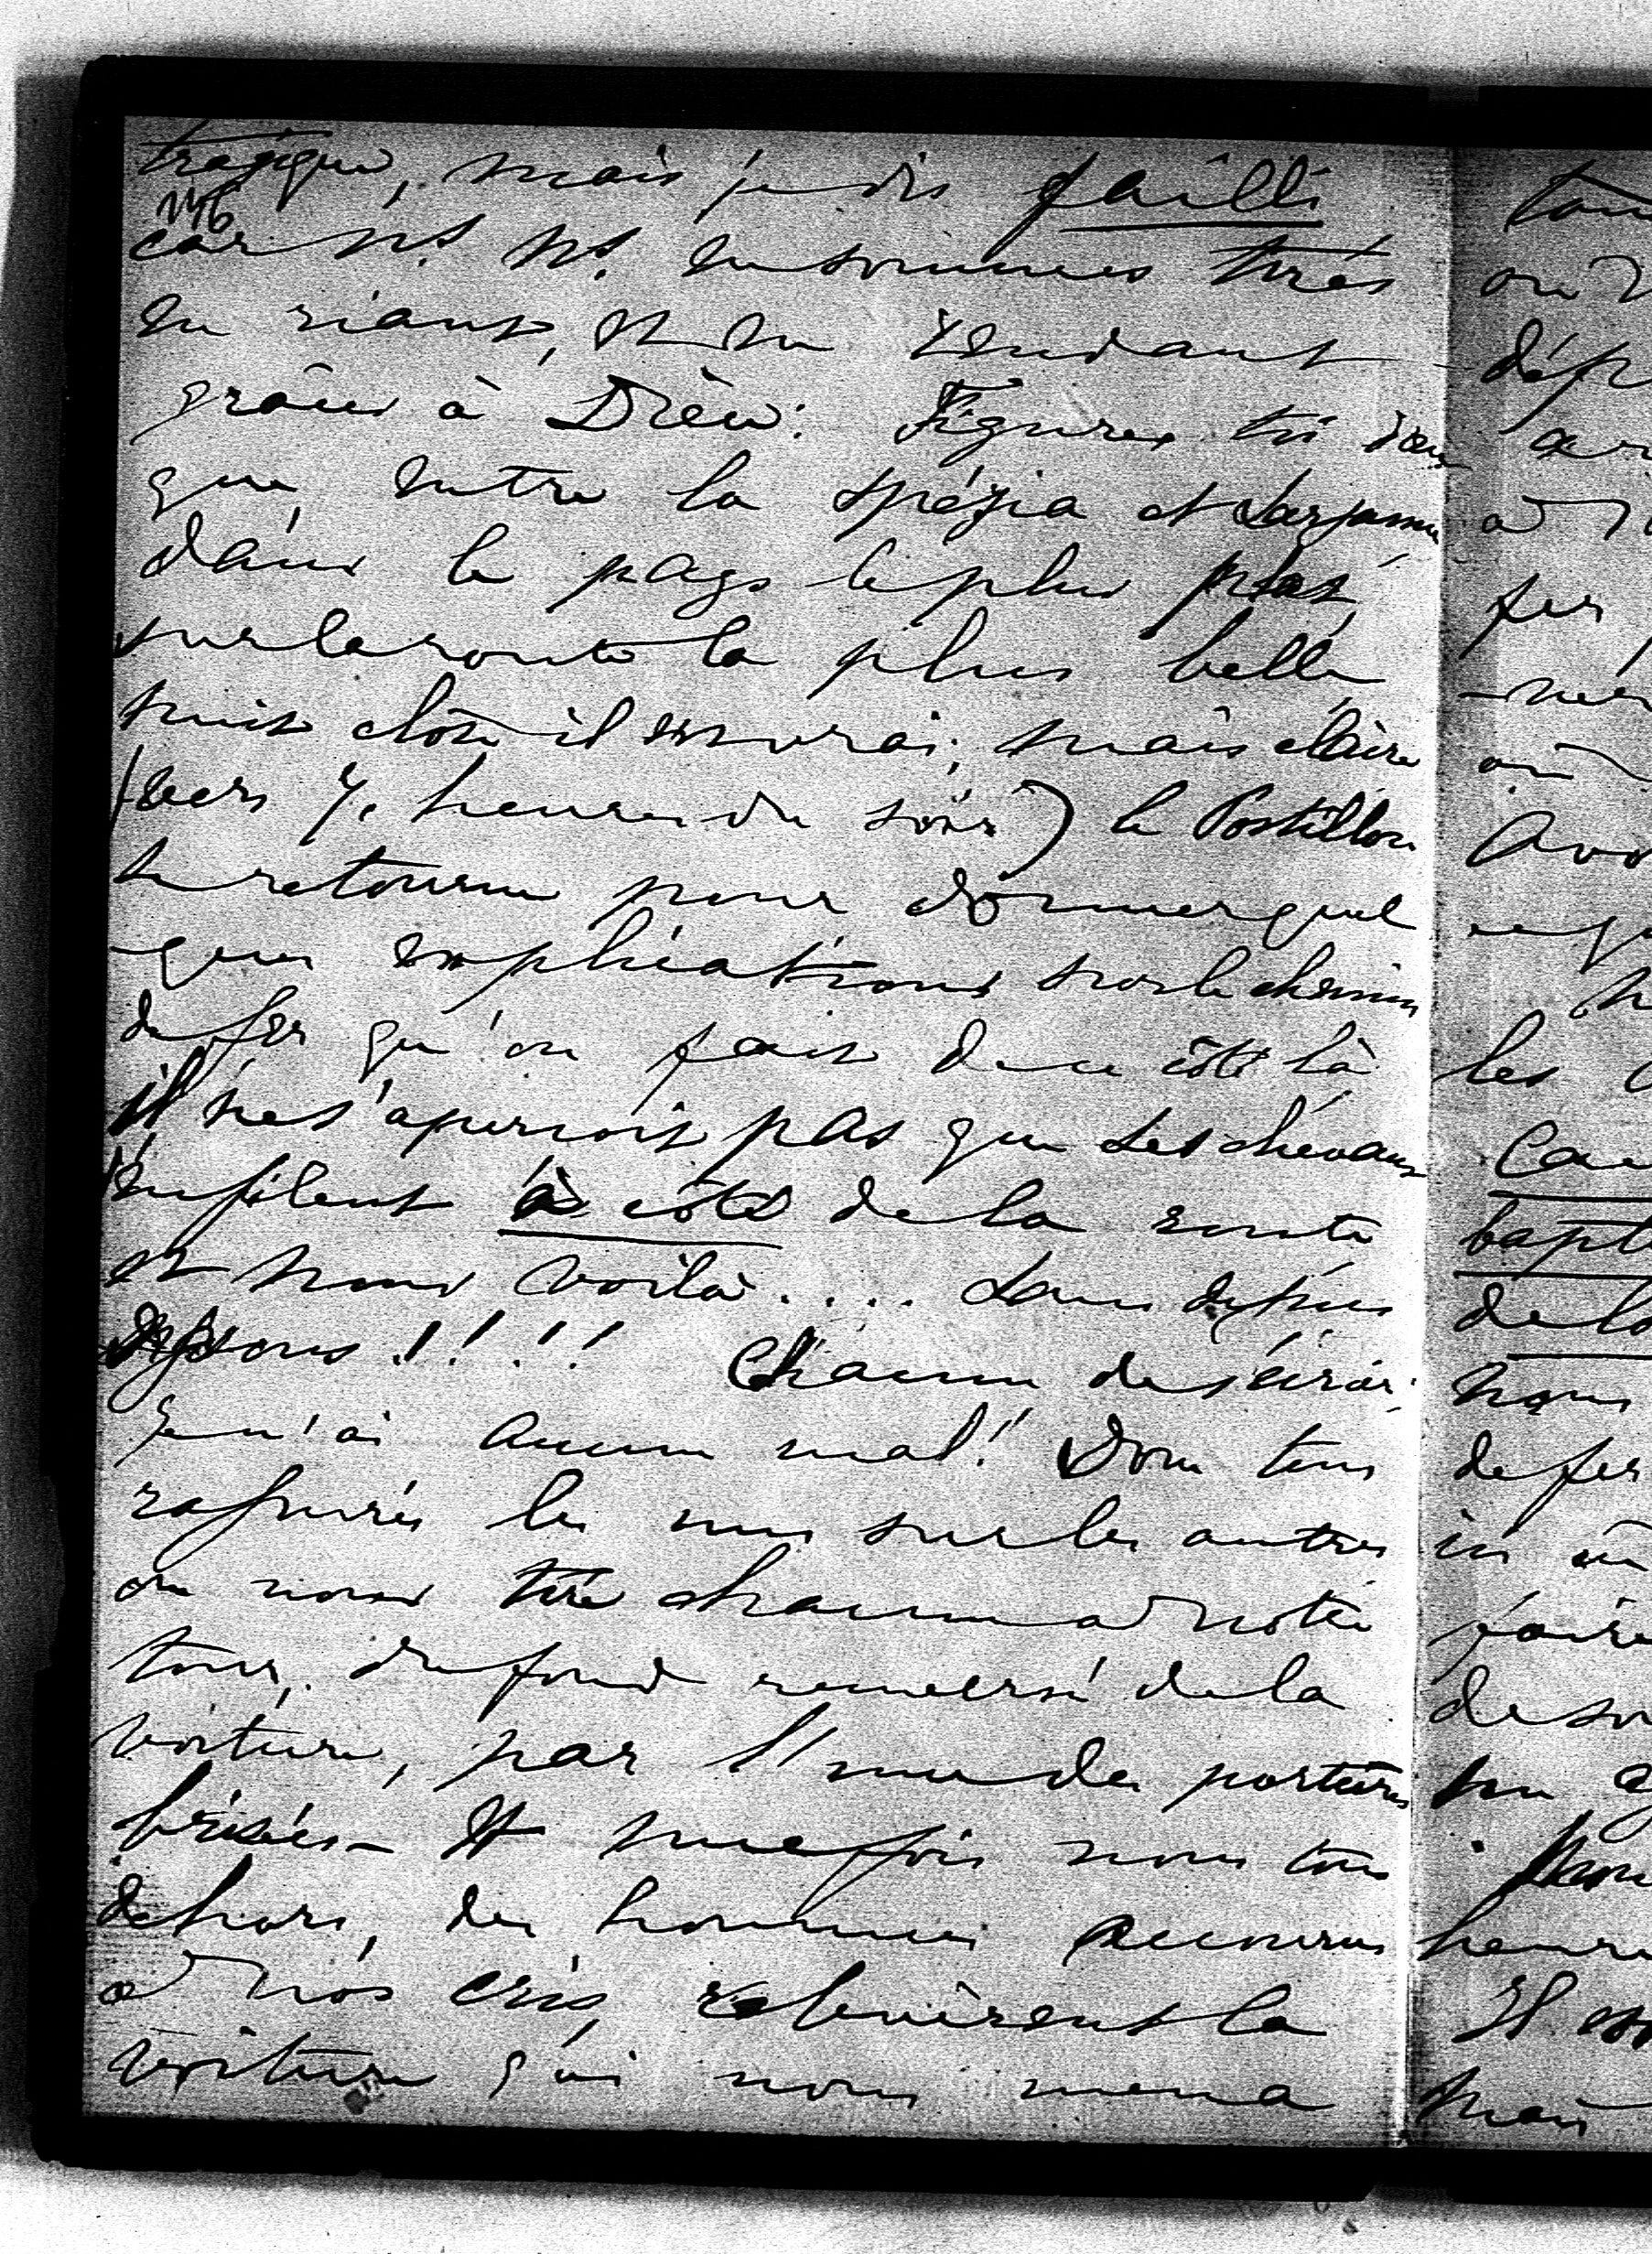 tragique, mais je dis failli
146
car ns. ns. en sommes tirés
en riant, et en rendant
grâces à Dieu: Figures toi donc
que entre la Spézia et Sarzanne
dans le pays le plus plat
sur la route la plus belle
nuit close il est vrai; mais claire
(vers 7. heures du soir) le Postillon
se retourne pour donner quel
-ques explications sur le chemin
de fer qu'on fait de ce côté là
il ne s'aperçoit pas que les chevaux
enfilent à côté de la route
et nous voilà.... sens dessus
dessous!!!! Chacun de s'écrier:
je n'ai aucun mal! Donc tous
les uns sur les autres
on nous tire chacun à notre
tour, du fond renversé de la
voiture, par l'une des portières
brisées - Et une fois nous tous
dehors, des hommes accourus
à nos cris, relevèrent la
voiture qui nous mena